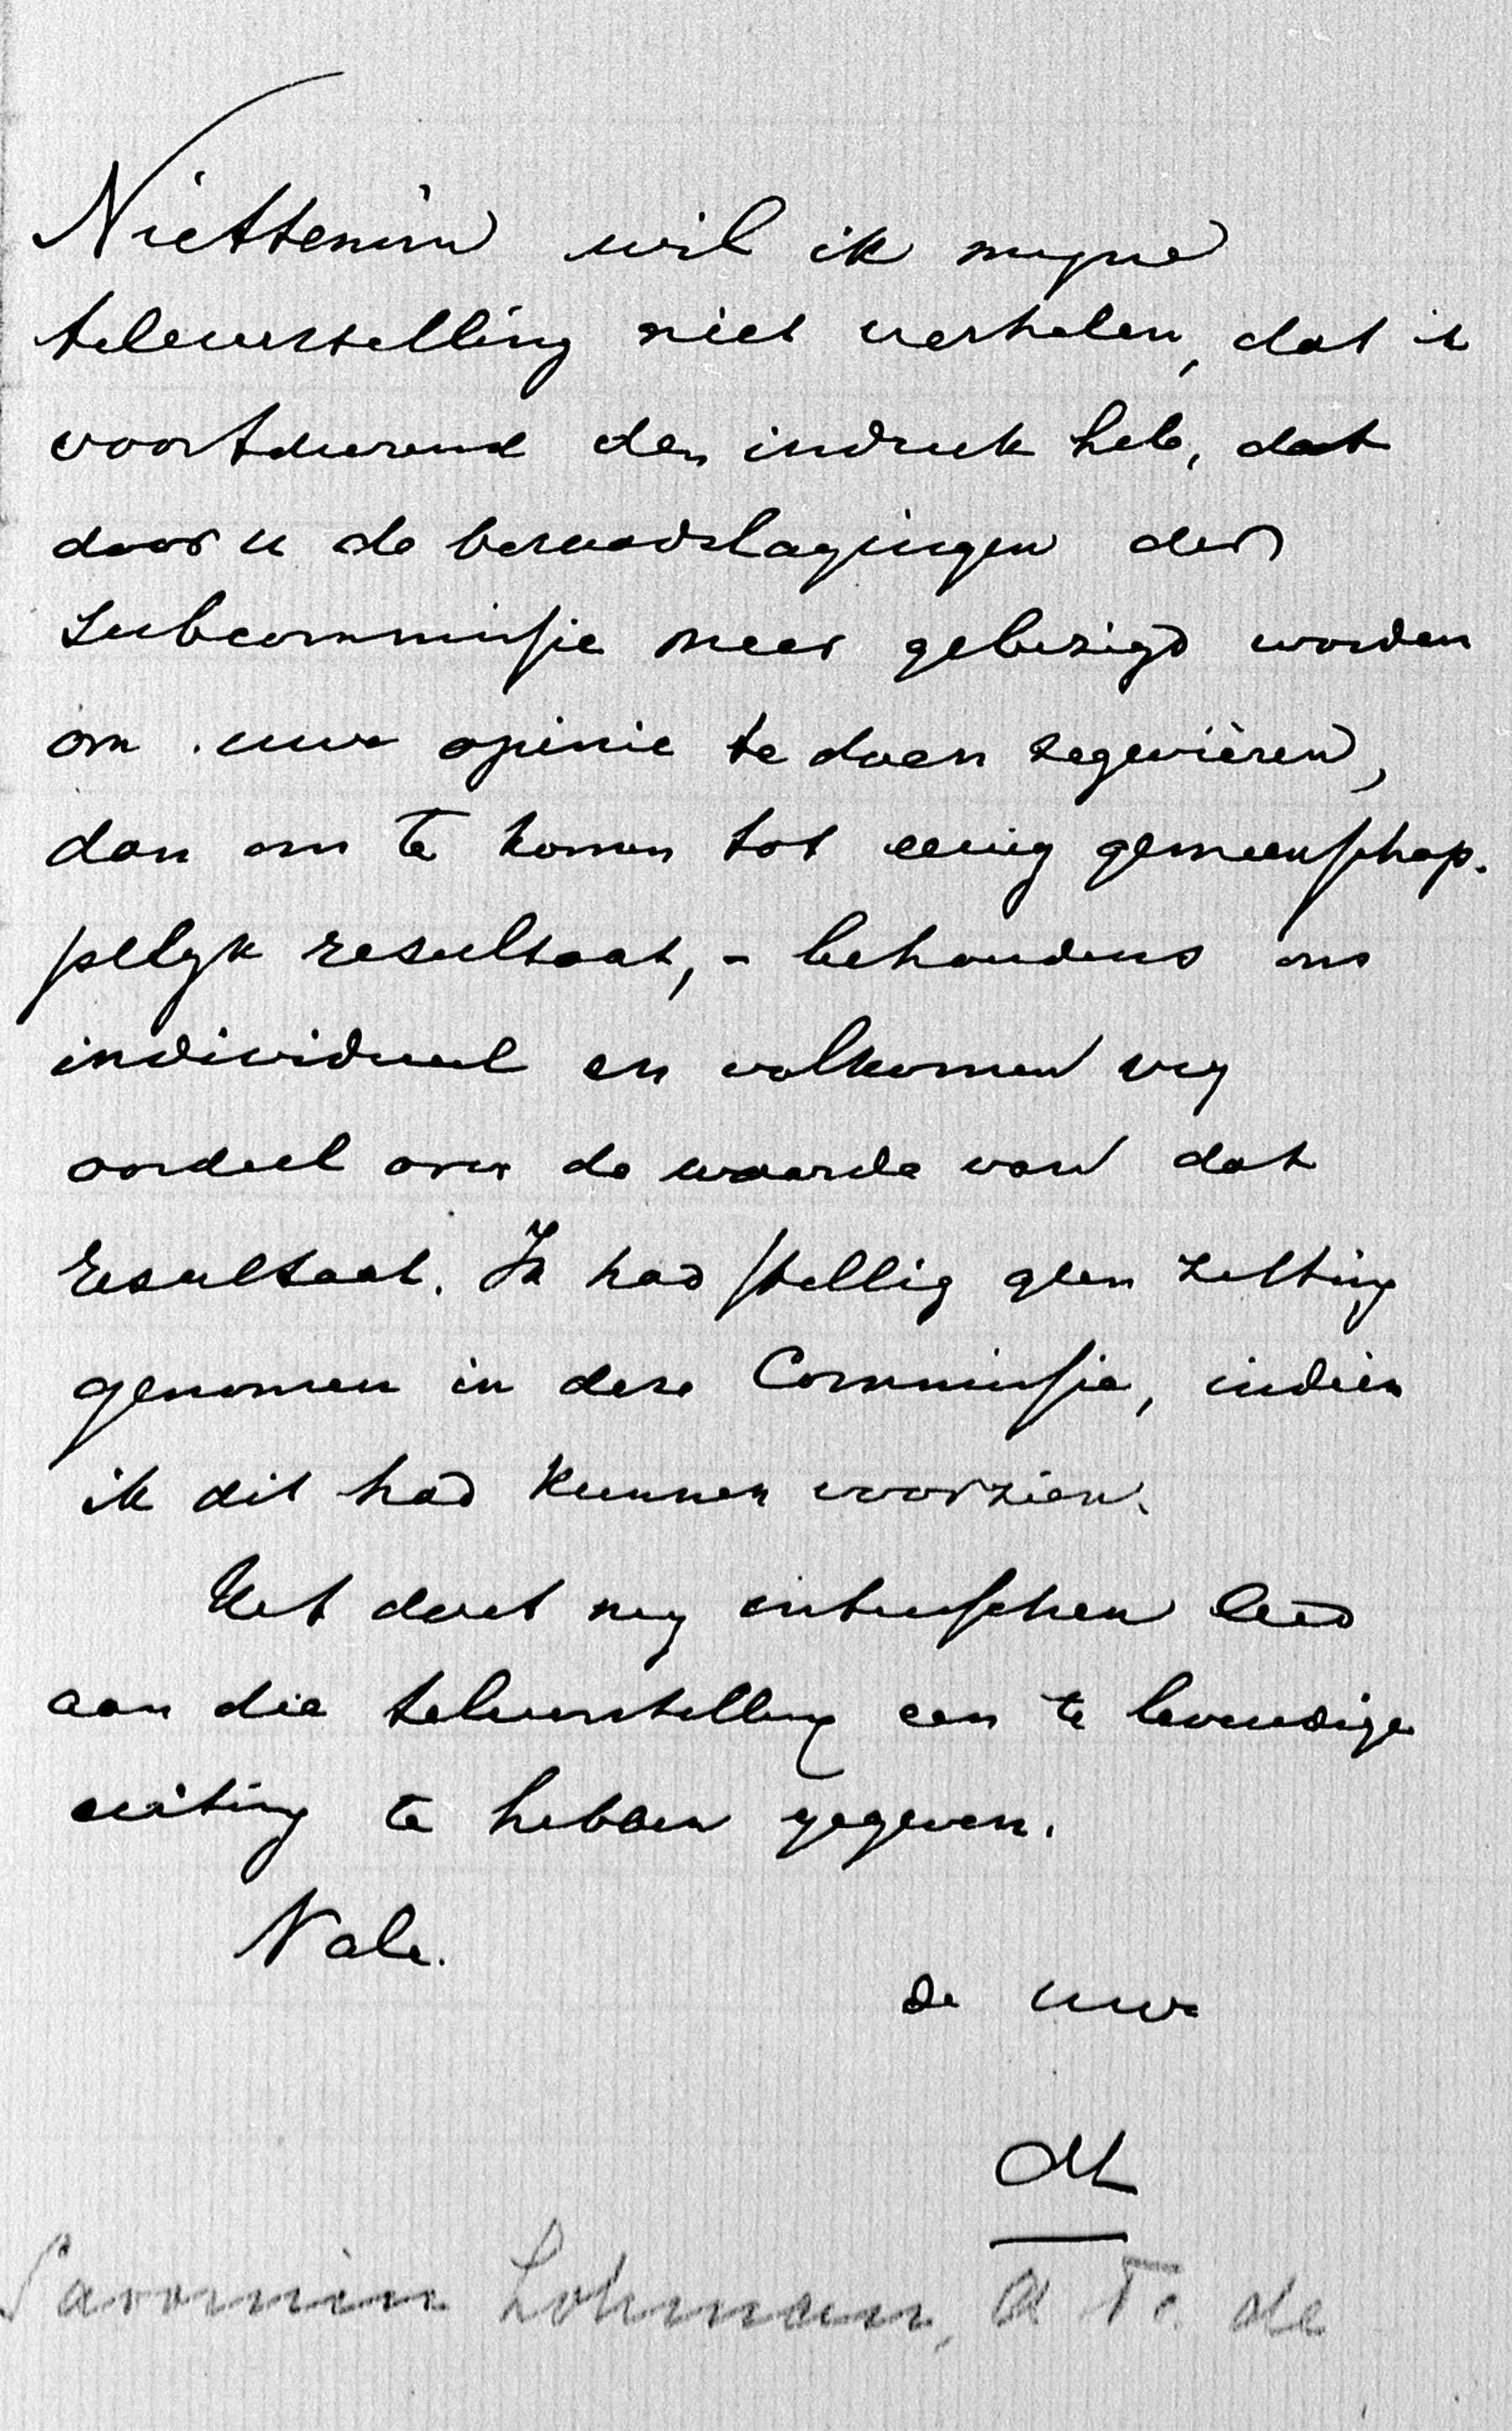 Niettemin wil ik mijne
teleurstelling niet verhelen, dat ik
voortdurend den indruk heb, dat
door u de beraadslagingen der
Subcommissie meer gebezigd worden
om uwe opinie te doen zegevieren,
dan om te komen tot eenig gemeenschap-
pelijk resultaat, - behoudens ons
individueel en volkomen vrij
oordeel over de waarde van dat
resultaat. Ik had stellig geen zitting
genomen in deze Commissie, indien
ik dit had kunnen voorzien.
Het doet mij intusschen leed
aan die teleurstelling een te levendige
uiting te hebben gegeven.
Vale.
de uwe
Savornin Lohman, A F. de